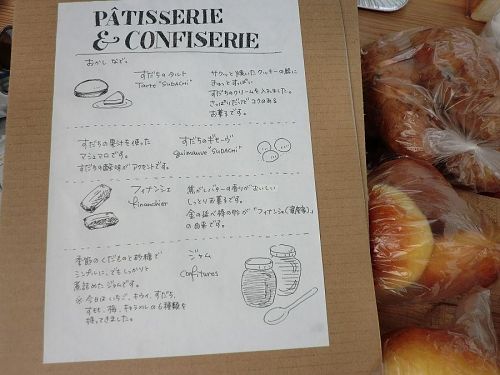 PÂTISSERIE
& CONFISERIE
おかし など。
すだちのタルト
Tarte "SUDACHI"
サクッと焼いたクッキーの器に
きゅっとすっぱい
すだちのクリームを入れました。
さっぱりだけど コクのある
お菓子です。
すだちの果汁を使った
マシュマロです。
すだちの酸味がアクセントです。
すだちのギモーヴ
guimauve "SUDACHI"
フィナンシェ
financier
焦がしバターの香りがおいしい
しっとりお菓子です。
金の延べ棒の形が「フィナンシェ(資産家)」
の由来です。
季節のくだものと砂糖で
シンプルに、でもしっかりと
煮詰めた ジャムです。
※今日は いちご、キウイ、すだち、
すもも、梅、キャラメル の6種類を
持ってきました。
ジャム
confitures